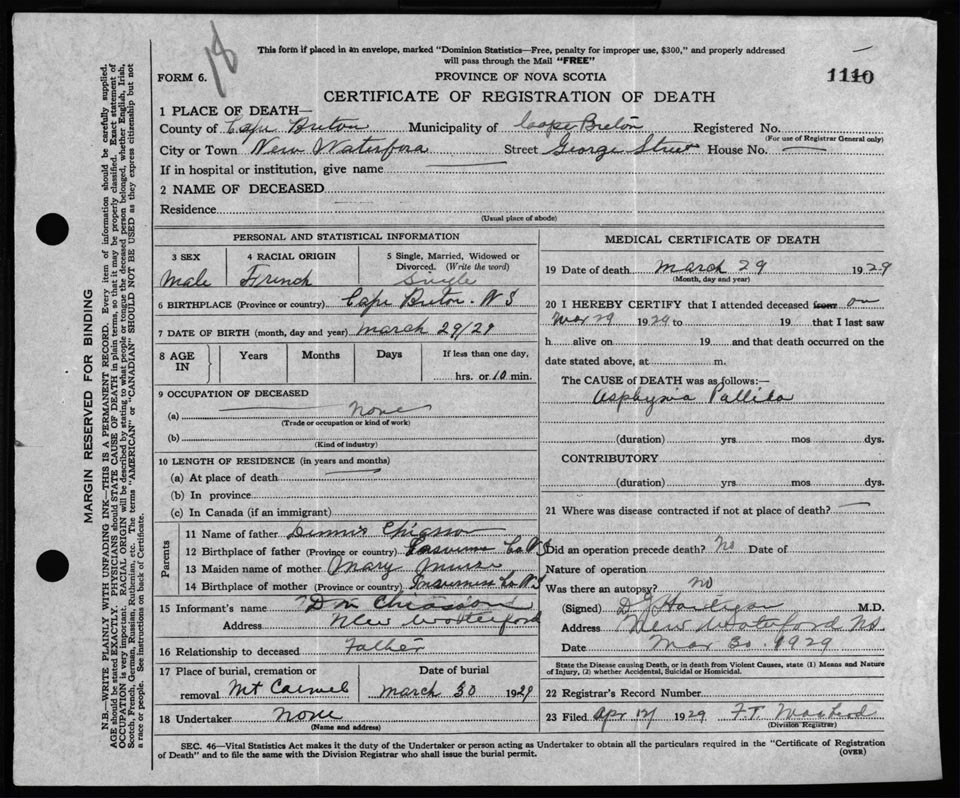 18
This form if placed in an envelope, marked "Dominion Statistics—Free, penalty for improper use, $300," and properly addressed
will pass through the Mail "FREE"
FORM 6.
PROVINCE OF NOVA SCOTIA
1110
CERTIFICATE OF REGISTRATION OF DEATH
1 PLACE OF DEATH—
County of Cape Breton Municipality of Cape Breton Registered No.
(For use of Registrar General only)
City or Town New Waterford Street George Street House No.
If in hospital or institution, give name
2 NAME OF DECEASED
Residence
(Usual place of abode)
PERSONAL AND STATISTICAL INFORMATION
3 SEX
Male
4 RACIAL ORIGIN
French
5 Single, Married, Widowed or
Divorced. (Write the word)
Single
6 BIRTHPLACE (Province or country) Cape Breton. N S
7 DATE OF BIRTH (month, day and year) March 29/29
8 AGE IN
Years Months Days If less than one day,
hrs. or 10 min.
9 OCCUPATION OF DECEASED
(a) None
(Trade or occupation or kind of work)
(b)
(Kind of industry)
10 LENGTH OF RESIDENCE (in years and months)
(a) At place of death
(b) In province
(c) In Canada (if an immigrant)
Parents
11 Name of father Dennis Chiasson
12 Birthplace of father (Province or country) Inverness Co. N S
13 Maiden name of mother Mary
14 Birthplace of mother (Province or country) Inverness Co N S
15 Informant's name Dn Chiasson
Address New Waterford
16 Relationship to deceased Father
17 Place of burial, cremation or
removal Mt Carmel
Date of burial
March 30 1929
18 Undertaker None
(Name and address)
MEDICAL CERTIFICATE OF DEATH
19 Date of death March 29 1929
(Month, day and year)
20 I HEREBY CERTIFY that I attended deceased from on
Mar 29 1929 to 19 that I last saw
h alive on 19 and that death occurred on the
date stated above, at m.
The CAUSE of DEATH was as follows:—
Asphyxia Pallida
(duration) yrs. mos dys.
CONTRIBUTORY
(duration) yrs. mos dys.
21 Where was disease contracted if not at place of death?
Did an operation precede death? No Date of
Nature of operation
Was there an autopsy? No
(Signed) Hartigan M.D.
Address New Waterford NS
Date Mar 30. 1929
State the Disease causing Death, or in death from Violent Causes, state (1) Means and Nature
of Injury, (2) whether Accidental, Suicidal or Homicidal.
22 Registrar's Record Number
23 Filed Apr 1929 F.T.
(Division Registrar)
SEC. 46—Vital Statistics Act makes it the duty of the Undertaker or person acting as Undertaker to obtain all the particulars required in the "Certificate of Registration
of Death" and to file the same with the Division Registrar who shall issue the burial permit.
(OVER)
MARGIN RESERVED FOR BINDING
N.B.—WRITE PLAINLY WITH UNFADING INK—THIS IS A PERMANENT RECORD. Every item of information should be carefully supplied.
AGE should be stated EXACTLY. PHYSICIANS should STATE CAUSE OF DEATH in plain terms, so that it may be properly classified. Exact statement of
OCCUPATION is very important. RACIAL ORIGIN will be described by stating to what people or tongue the deceased person belonged, whether English, Irish,
Scotch, French, German, Russian, Ruthenian, etc. The terms "AMERICAN" or "CANADIAN" SHOULD NOT BE USED as they express citizenship but not
a race or people. See instructions on back of Certificate.